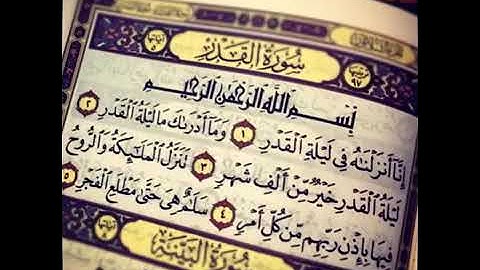 سُورَةُ القَدْرِ
بِسْمِ اللَّهِ الرَّحْمَٰنِ الرَّحِيمِ
إِنَّا أَنزَلْنَٰهُ فِي لَيْلَةِ الْقَدْرِ ١ وَمَا أَدْرَىٰكَ مَا لَيْلَةُ الْقَدْرِ ٢
لَيْلَةُ الْقَدْرِ خَيْرٌ مِّنْ أَلْفِ شَهْرٍ ٣ تَنَزَّلُ الْمَلَٰٓئِكَةُ وَالرُّوحُ
فِيهَا بِإِذْنِ رَبِّهِم مِّن كُلِّ أَمْرٍ ٤ سَلَٰمٌ هِيَ حَتَّىٰ مَطْلَعِ الْفَجْرِ ٥
سُورَةُ البَيِّنَةِ